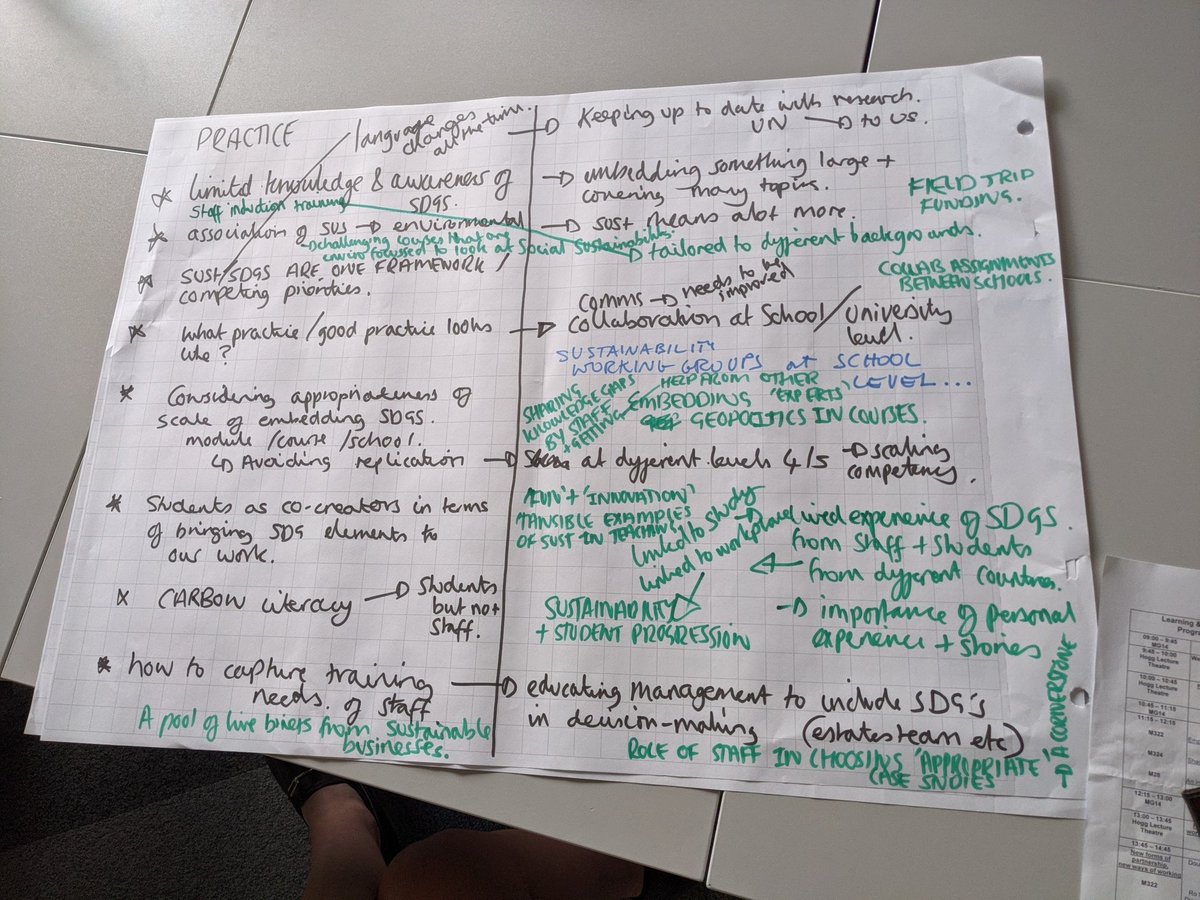 PRACTICE
language
changes
all the time.
limited knowledge & awareness of
SDGs.
Staff induction training
association of sus → environmental
→ challenging courses that are
enviro focussed to look at Social Sustainability.
SUST/SDGS ARE ONE FRAMEWORK /
competing priorities.
what practice / good practice looks
like?
Considering appropriateness of
scale of embedding SDGs.
module / course / school.
↳ Avoiding replication
Students as co-creators in terms
of bringing SDG elements to
our work.
CARBON literacy → Students
but not
staff.
how to capture training
needs of staff
A pool of live briefs from sustainable
businesses.
Keeping up to date with research.
UN → to US.
embedding something large +
covering many topics.
→ sust means alot more.
tailored to different backgrounds.
FIELD TRIP
FUNDING.
COLLAB ASSIGNMENTS
BETWEEN SCHOOLS.
comms → needs to be
improved
collaboration at School / University
level.
SUSTAINABILITY
WORKING GROUPS at SCHOOL
LEVEL...
SHARING
KNOWLEDGE GAPS
BY STAFF
+ GETTING
HELP FROM OTHER
'EXPERTS'
EMBEDDING
GEOPOLITICS IN COURSES.
at different levels 4/5 → scaling
competency.
'FUN' + 'INNOVATION'
TANGIBLE EXAMPLES
OF SUST IN TEACHING
linked to study
linked to workplace
lived experience of SDGS
from staff + students
from different countries.
SUSTAINABILITY
+ STUDENT PROGRESSION
→ importance of personal
experience + stories
→ 'A CORNERSTONE'
educating management to include SDG's
in decision-making (estates team etc)
ROLE OF STAFF IN CHOOSING 'APPROPRIATE'
CASE STUDIES
Learning &
09:00 – 9:45
MG14
9:45 – 10:00
Hogg Lecture
Theatre
10:00 – 10:45
Hogg Lecture
Theatre
10:45 – 11:15
MG14
11:15 – 12:15
M322
M324
M28
12:15 – 13:00
MG14
13:00 – 13:45
Hogg Lecture
Theatre
13:45 – 14:45
New forms of
partnership,
new ways of working
M322